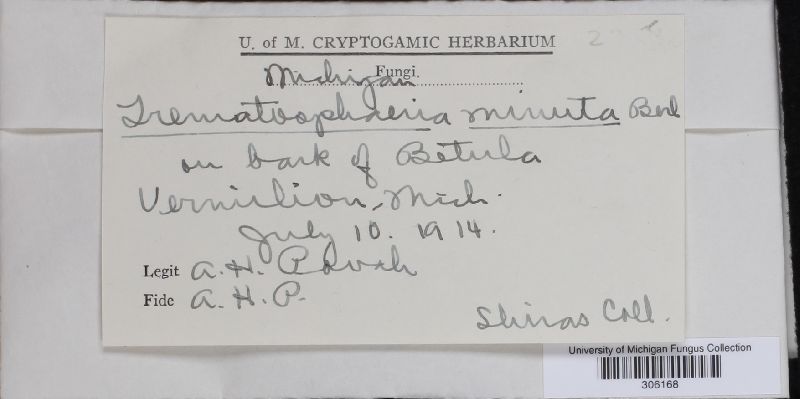 U. of M. CRYPTOGAMIC HERBARIUM
Fungi.
Michigan
Trematosphaeria minuta Berl
on bark of Betula
Vermilion, Mich.
July 10. 1914.
Legit A. H. Povah
Fide A. H. P.
Shiras Coll.
University of Michigan Fungus Collection
306168